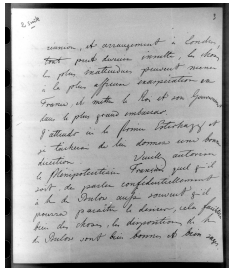 3
réunion, et arrangement à Londres,
tout peut devenir inutile, les choses
les plus inattendues peuvent mener
à la plus affreuse exaspération en
France, et mettre le Roi et son Gouvernement
dans le plus grand embarras.
J'attends ici le Prince Esterhazy et
je tâcherai de lui donner une bonne
direction. Veuillez autoriser
le Plénipotentiaire Français quel qu'il
soit, de parler confidentiellement
à B. de Bulow aussi souvent qu'il
pourra paraître le désirer, cela
bien des choses, les dispositions de
de Bulow sont bien bonnes et bien